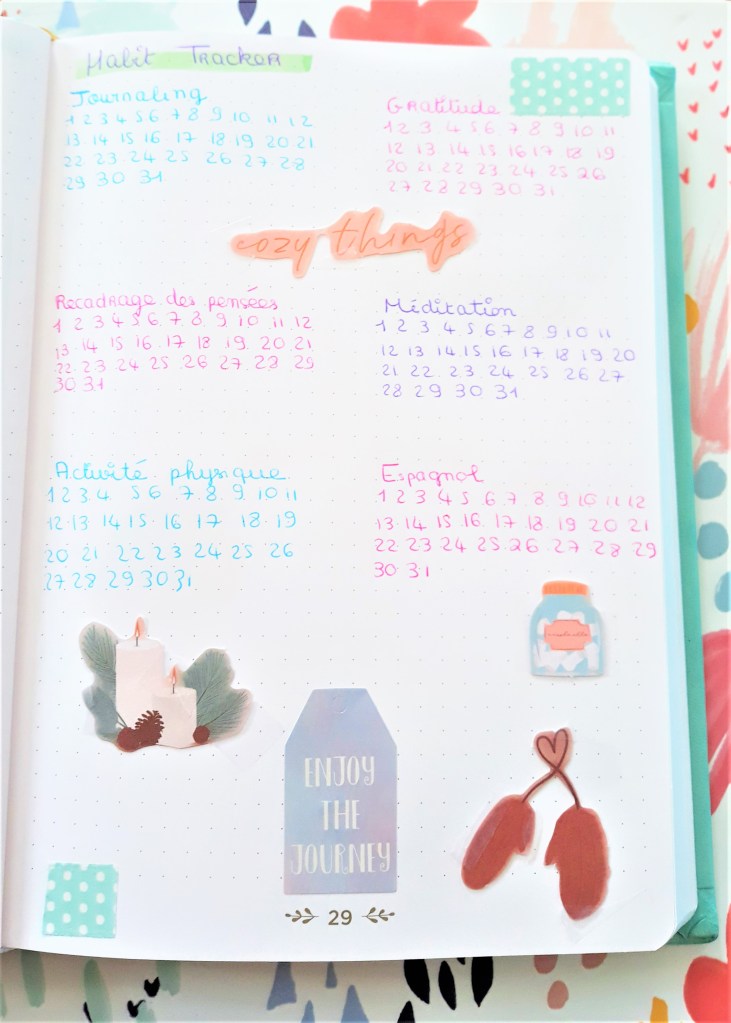 Habit Tracker
Journaling
1 2 3 4 5 6 7 8 9 10 11 12
13 14 15 16 17 18 19 20 21
22 23 24 25 26 27 28
29 30 31
Gratitude
1 2 3 4 5 6 7 8 9 10 11
12 13 14 15 16 17 18 19
20 21 22 23 24 25 26
27 28 29 30 31
cozy things
Recadrage des pensées
1 2 3 4 5 6 7 8 9 10 11 12
13 14 15 16 17 18 19 20 21
22 23 24 25 26 27 28 29
30 31
Méditation
1 2 3 4 5 6 7 8 9 10 11
12 13 14 15 16 17 18 19 20
21 22 23 24 25 26 27
28 29 30 31
Activité physique
1 2 3 4 5 6 7 8 9 10 11
12 13 14 15 16 17 18 19
20 21 22 23 24 25 26
27 28 29 30 31
Espagnol
1 2 3 4 5 6 7 8 9 10 11 12
13 14 15 16 17 18 19 20 21
22 23 24 25 26 27 28 29
30 31
ENJOY
THE
JOURNEY
29